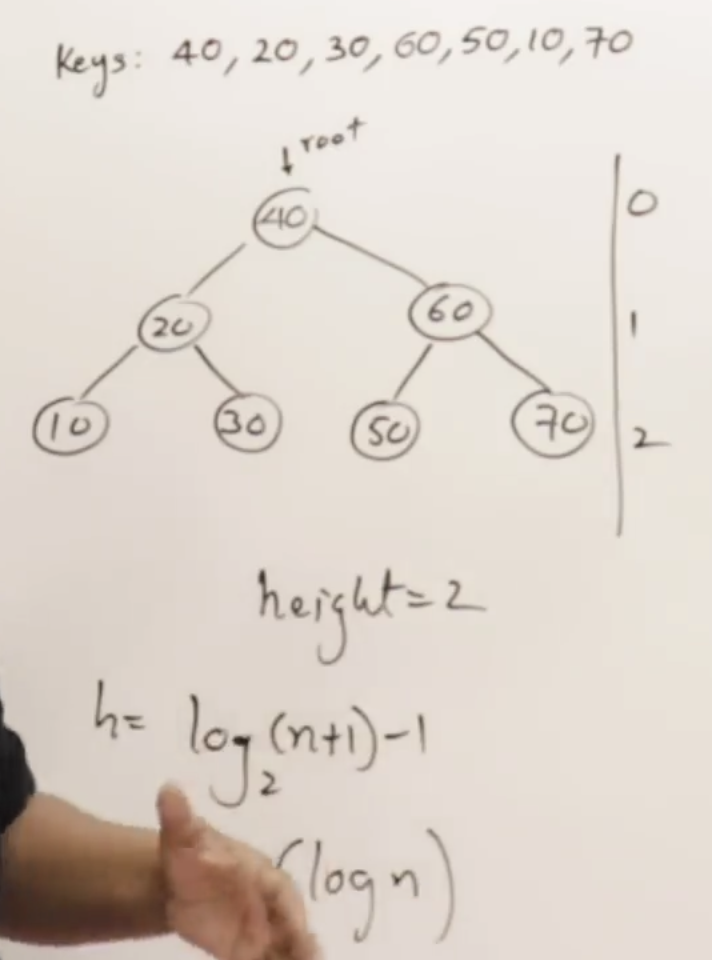 Keys: 40, 20, 30, 60, 50, 10, 70
↓ root
40 0
20 60 1
10 30 50 70 2
height = 2
h = log₂(n+1)-1
(log n)